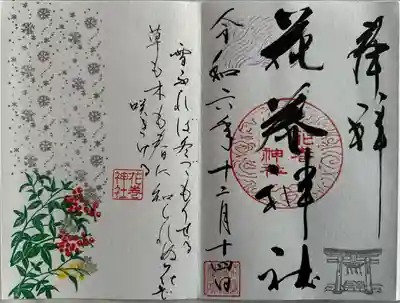 奉拝
花巻神社
花巻
神社
令和六年十二月十四日
雪ふれば冬ごもりせる
草も木も春に知られぬ花ぞ
咲きける
花巻
神社